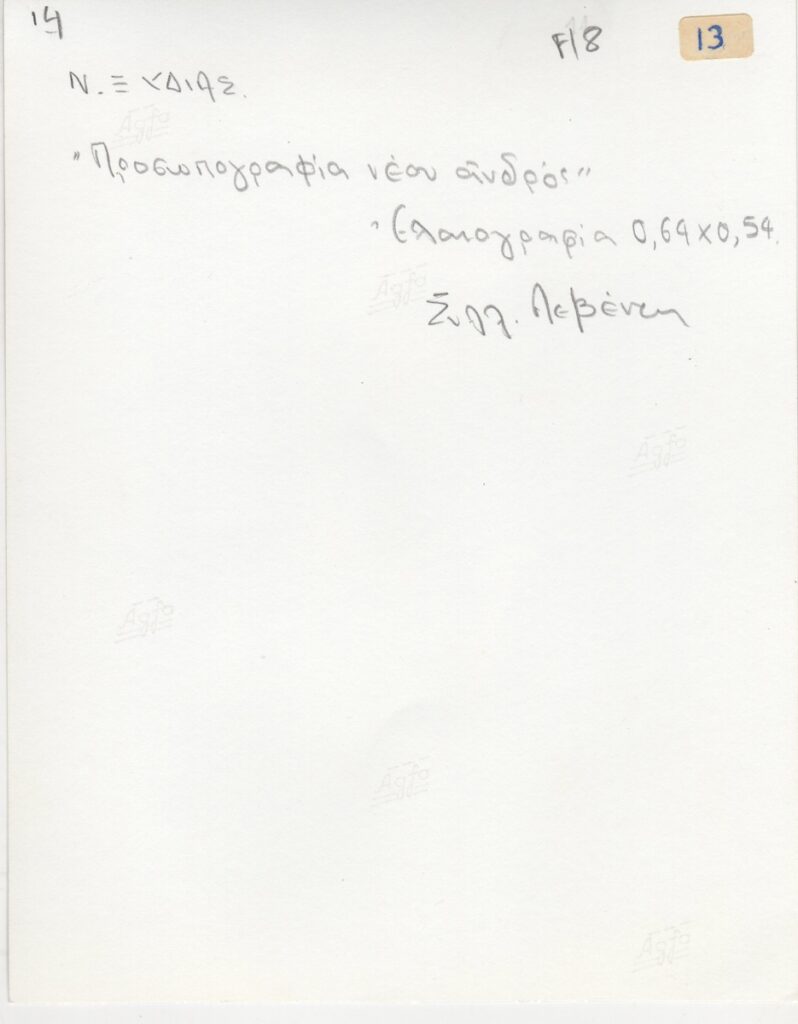 14
F/8
13
Ν. ΞΥΔΙΑΣ.
"Προσωπογραφία νέου ἀνδρός"
Ἐλαιογραφία 0,64 x 0,54.
Συλλ. Λεβέντη
Agfa
Agfa
Agfa
Agfa
Agfa
Agfa